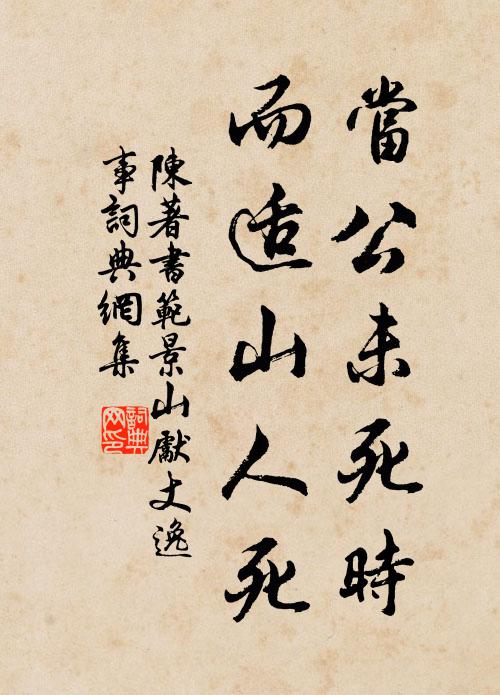 當公未死時
而适山人死
陳著書範景山獻丈逸
事詞典網集
詞典网印